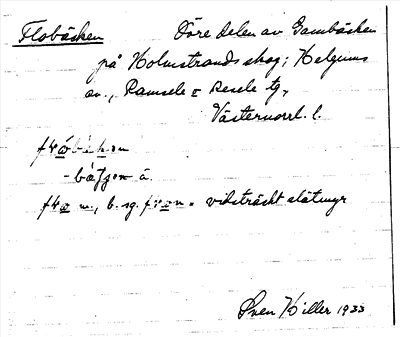 Flobäcken Övre delen av Gambäcken
på Holmstrands skog; Helgums
sn., Ramsele o Resele tg,
Västernorrl. l.
-bäʃʃən ä.
m., b. sg. = vidsträckt slåtmyr
Sven Hiller 1933